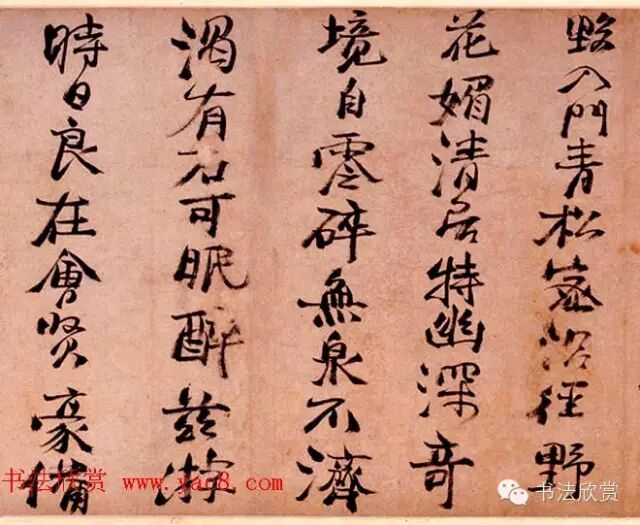 入門青松沿徑野
花媚清居特幽深奇
境自零碎無泉不濟
渴有石可眠醉茲游
時日良在會賢豪備
书法欣赏 www.yac8.com
书法欣赏